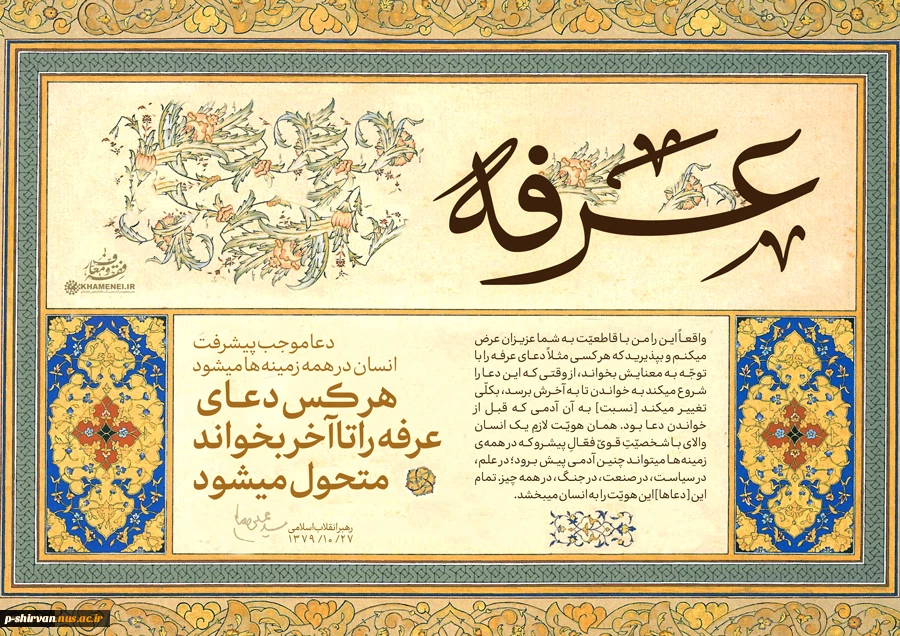 عرفه
فقه و معارف
KHAMENEI.IR
واقعاً این را من با قاطعیّت به شما عزیزان عرض
میکنم و بپذیرید که هر کسی مثلاً دعای عرفه را با
توجّه به معنایش بخواند، از وقتی که این دعا را
شروع میکند به خواندن تا به آخرش برسد، بکلّی
تغییر میکند [نسبت] به آن آدمی که قبل از
خواندن دعا بود. همان هویّت لازمِ یک انسان
والای با شخصیّتِ قویّ فعّالِ پیشرو که در همه‌ی
زمینه‌ها میتواند چنین آدمی پیش برود؛ در علم،
در سیاست، در صنعت، در جنگ، در همه چیز. تمام
این [دعاها] این هویّت را به انسان میبخشد.
دعا موجب پیشرفت
انسان در همه زمینه‌ها میشود
هر کس دعای
عرفه را تا آخر بخواند
متحول میشود
رهبر انقلاب اسلامی
۱۳۷۹/۱۰/۲۷
p-shirvan.nus.ac.ir